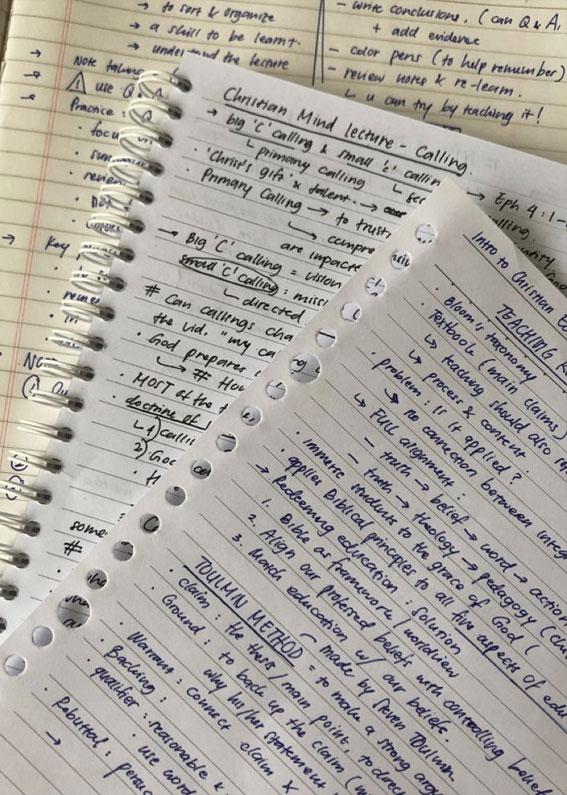 → to sort & organize
→ a skill to be learnt.
→ understand the lecture
Note taking
⚠ use Q
Practice :
→ Key
- write conclusions. (can Q & A,
+ add evidence
- color pens (to help remember)
- review notes & re-learn.
↳ u can try by teaching it!
Christian Mind lecture - Calling.
→ big 'C' calling & small 'c' calling
↳ primary calling
→ Eph 4:1-
• 'Christ's gift' & talent. →
• Primary Calling → to trust
are impacte
→ Big 'C' calling = vision
small 'c' calling : miss
↳ directed
# Can callings cha
the lid. "my ca
• God prepares
↳ # Ho
• MOST of the t
• doctrine of
↳ 1) calli
2) Go
some
#
Intro to Christian Ed
TEACHING R
• Bloom's taxonomy
Textbook (main claims)
↳ teaching should also re
↳ process & content.
• problem : Is it applied?
↳ no connection between integ
↳ FULL alignment :
- truth → belief → word → action
- truth → theology → pedagogy (cla
• immerse students to the grace of God (
• applies Biblical principles to all five aspects of edu
→ Redeeming education : solution
1. Bible as framework / worldview
2. Align our professed beliefs with controlling belief
3. Match education w/ our beliefs.
TOULMIN METHOD - made by Steven Toulmin
= to make a strong arg
• claim : the thesis / main point. to direc
• Ground : to back up the claim (w
why his/her statement
• Warrant : connect claim &
• Backing :
• qualifier : reasonable &
• use word
• Rebuttal : persua
→